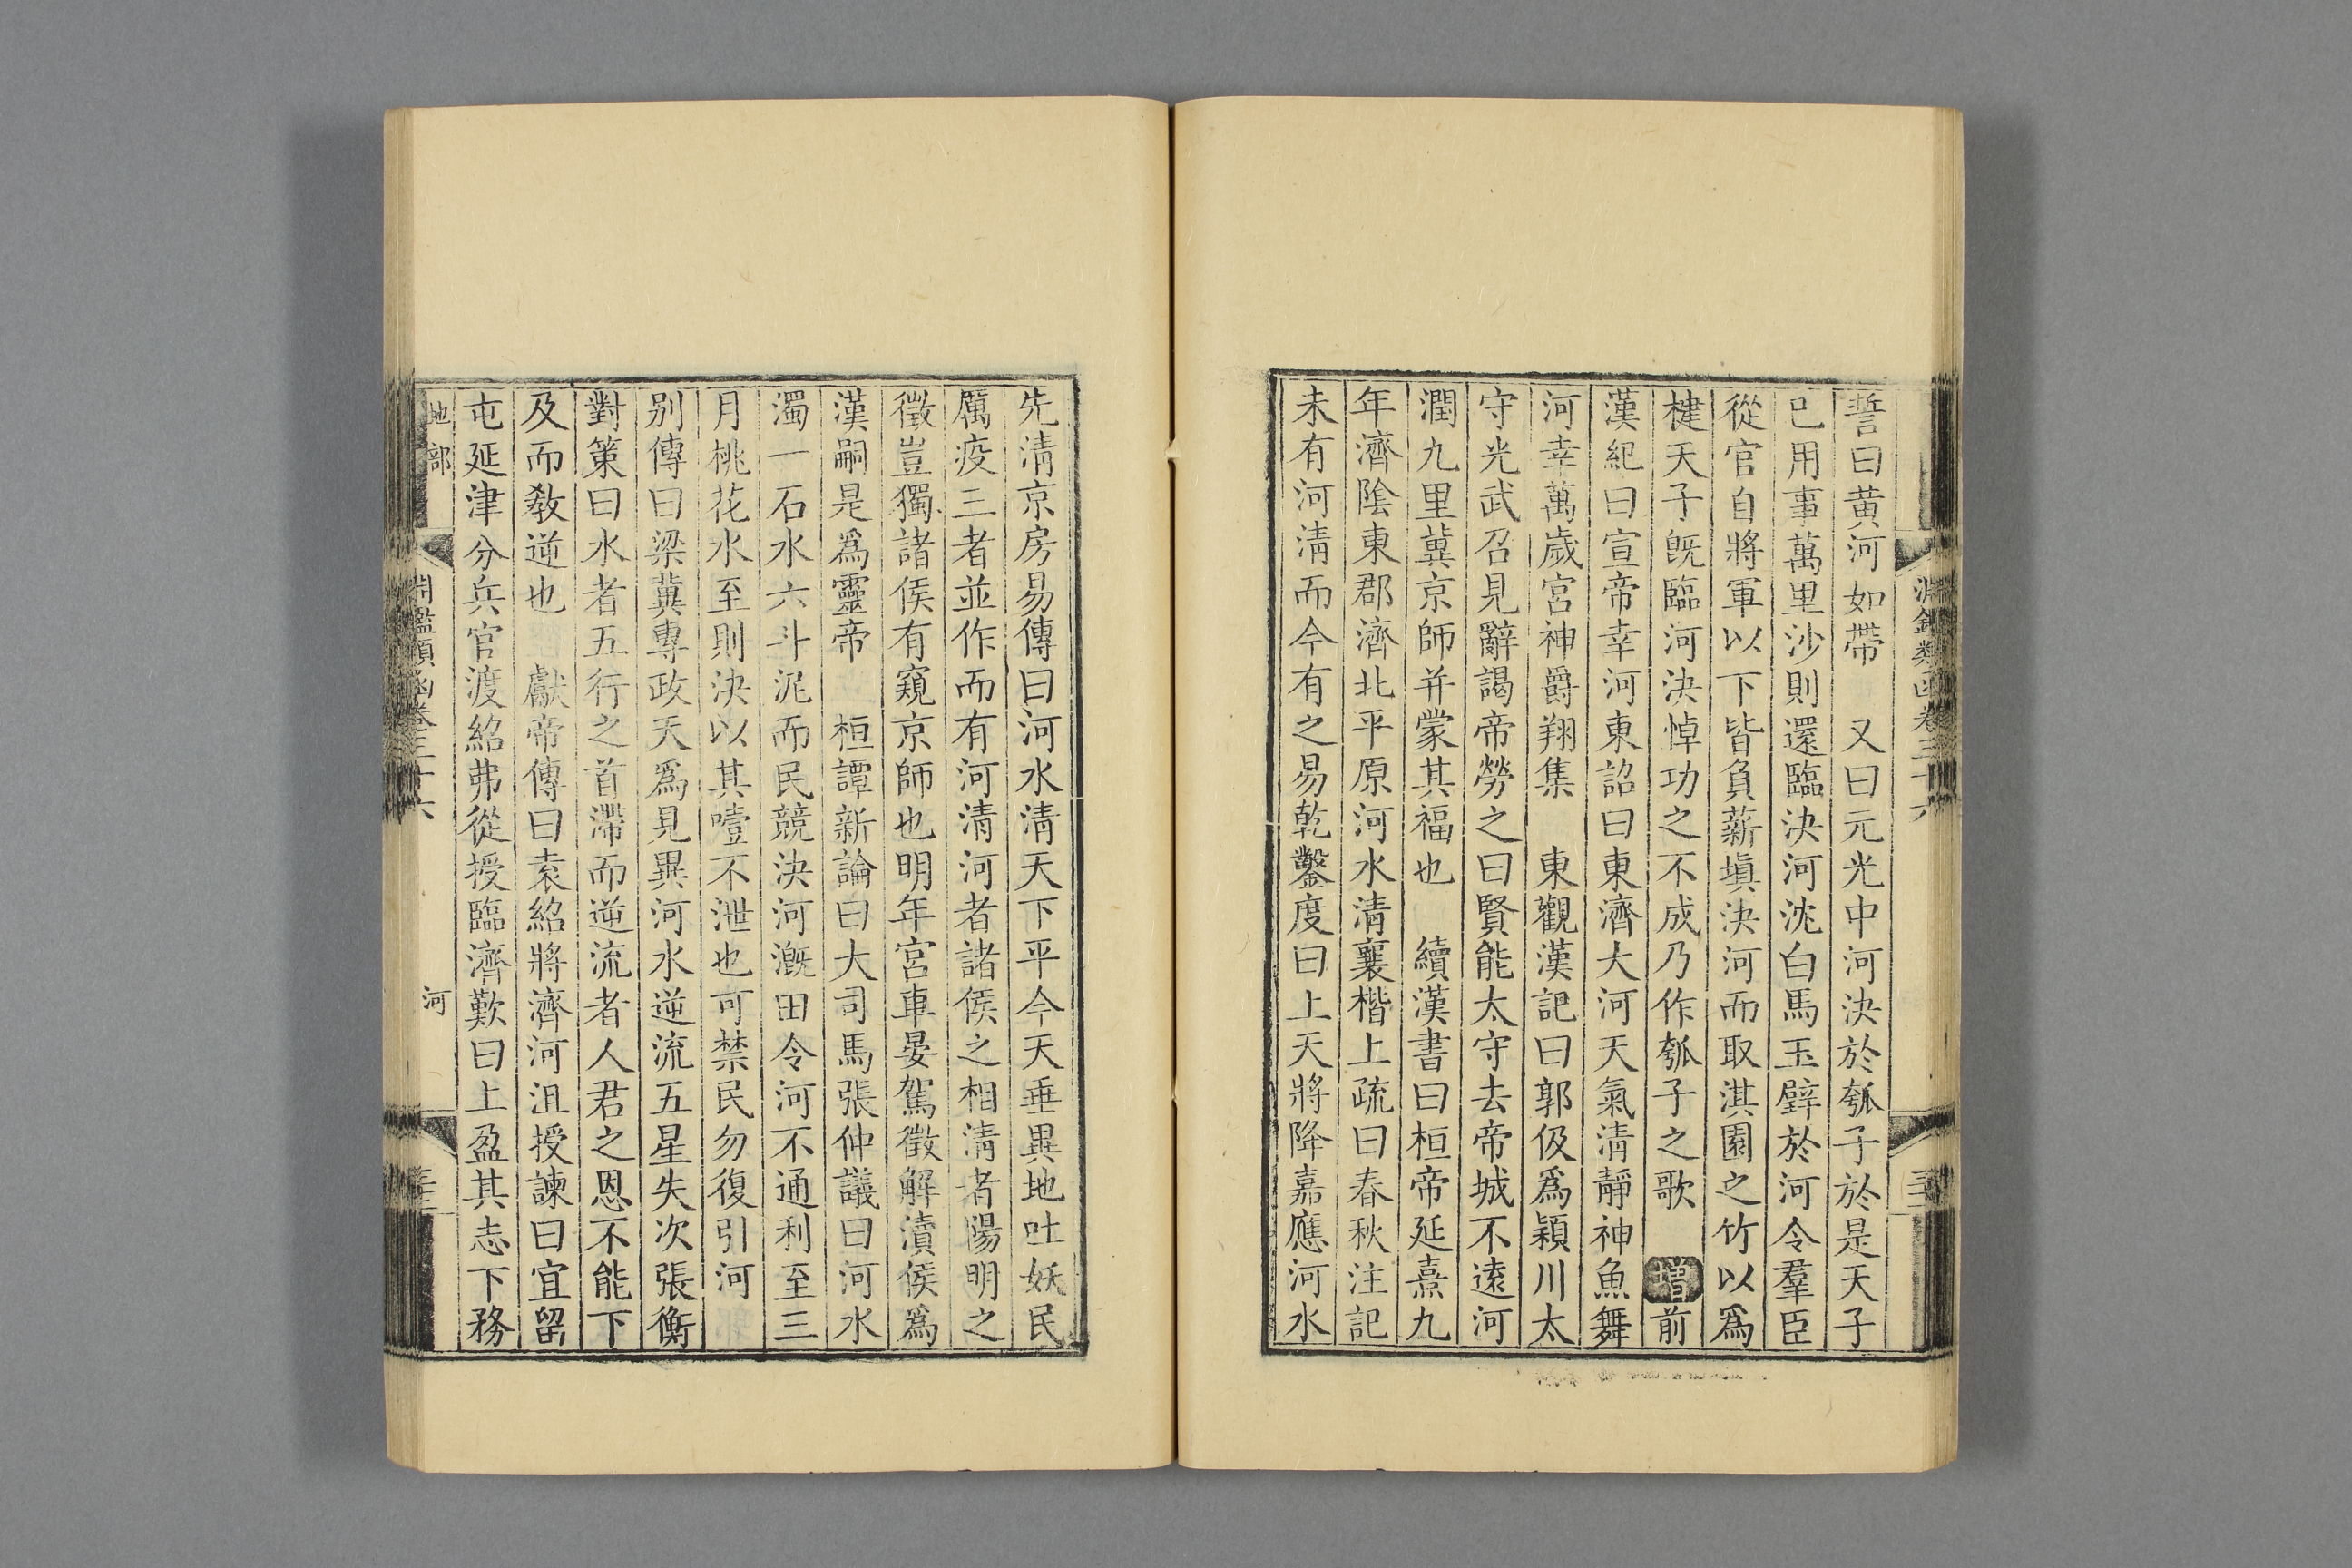 淵鑑類函卷三十六
誓曰黄河如帶　又曰元光中河決於瓠子於是天子
已用事萬里沙則還臨決河沈白馬玉璧於河令羣臣
從官自將軍以下皆負薪塡決河而取淇園之竹以爲
楗天子旣臨河決悼功之不成乃作瓠子之歌　增前
漢紀曰宣帝幸河東詔曰東濟大河天氣淸靜神魚舞
河幸萬歲宮神爵翔集　東觀漢記曰郭伋爲潁川太
守光武召見辭謁帝勞之曰賢能太守去帝城不遠河
潤九里冀京師并蒙其福也　續漢書曰桓帝延熹九
年濟陰東郡濟北平原河水淸襄楷上疏曰春秋注記
未有河淸而今有之易乾鑿度曰上天將降嘉應河水
先淸京房易傳曰河水淸天下平今天垂異地吐妖民
厲疫三者並作而有河淸河者諸侯之相淸者陽明之
徵豈獨諸侯有窺京師也明年宮車晏駕徵解瀆侯爲
漢嗣是爲靈帝　桓譚新論曰大司馬張仲議曰河水
濁一石水六斗泥而民競決河漑田令河不通利至三
月桃花水至則決以其噎不泄也可禁民勿復引河
別傳曰梁冀專政天爲見異河水逆流五星失次張衡
對策曰水者五行之首滯而逆流者人君之恩不能下
及而敎逆也　獻帝傳曰袁紹將濟河沮授諫曰宜留
屯延津分兵官渡紹弗從授臨濟歎曰上盈其志下務
地部
淵鑑類函卷三十六
河